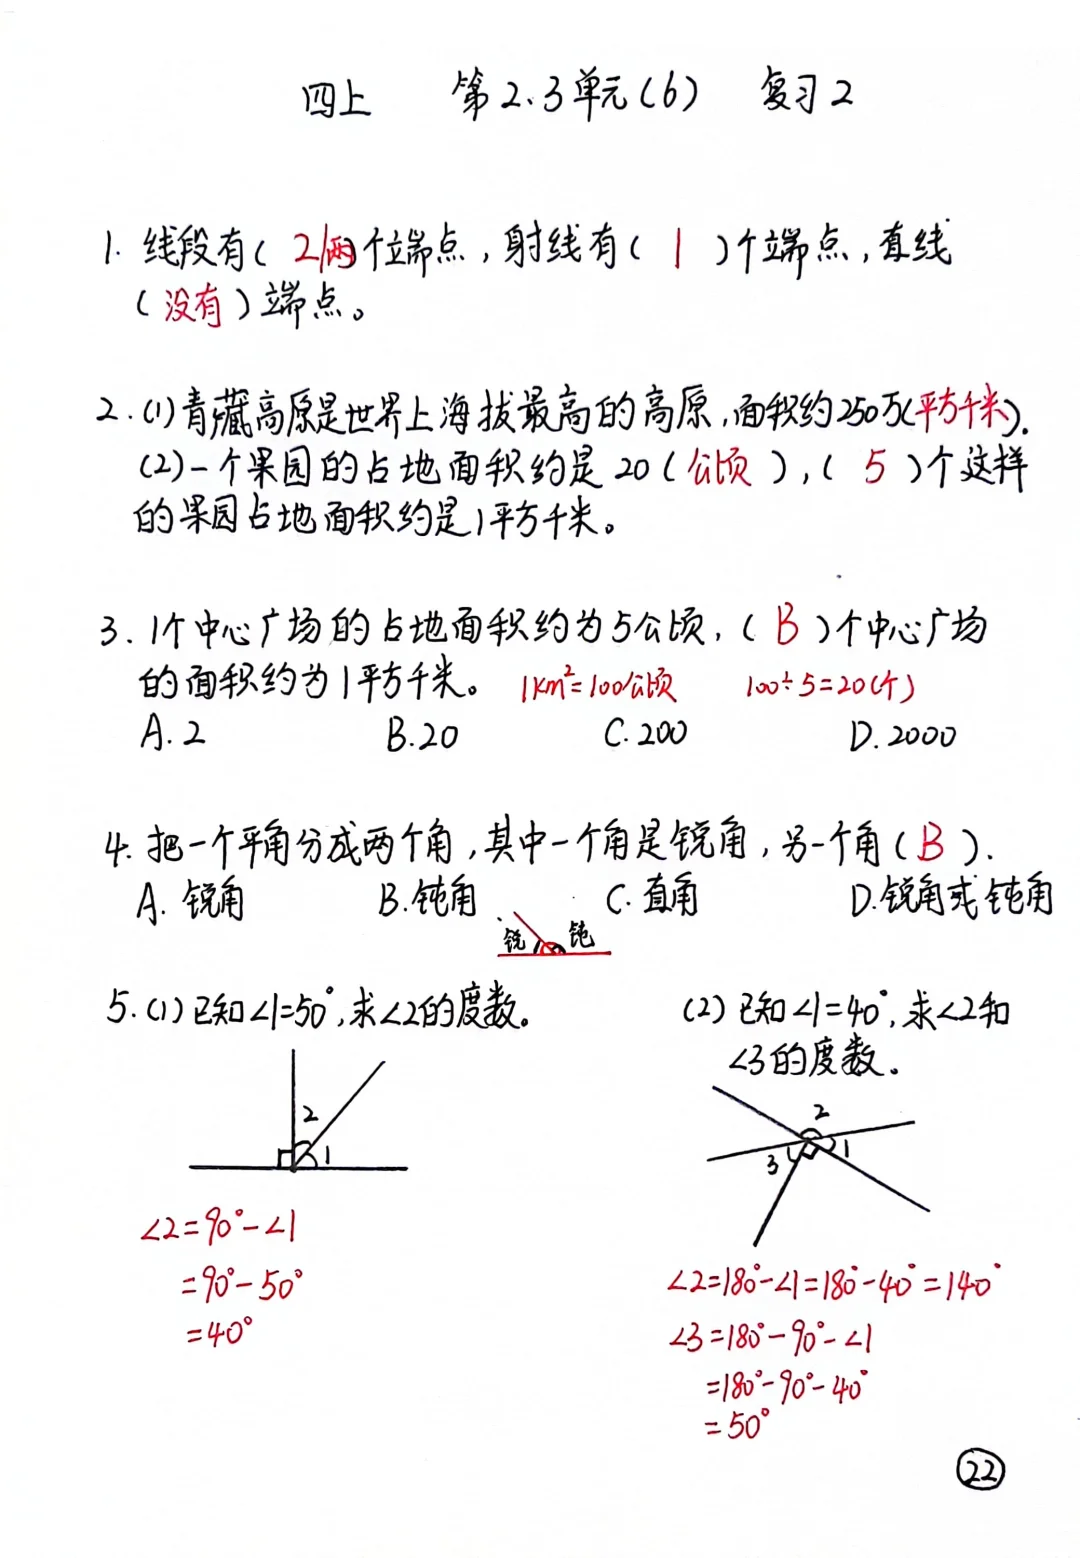 四上 第2.3单元(6) 复习2
1. 线段有( 2/两)个端点,射线有( 1 )个端点,直线
(没有)端点。
2.(1)青藏高原是世界上海拔最高的高原,面积约250万(平方千米).
(2)一个果园的占地面积约是20(公顷),( 5 )个这样
的果园占地面积约是1平方千米。
3. 1个中心广场的占地面积约为5公顷,( B )个中心广场
的面积约为1平方千米。 1km²=100公顷 100÷5=20(个)
A. 2 B.20 C. 200 D. 2000
4. 把一个平角分成两个角,其中一个角是锐角,另一个角( B ).
A. 锐角 B.钝角 C. 直角 D.锐角或钝角
锐 钝
5.(1)已知∠1=50°,求∠2的度数。 (2)已知∠1=40°,求∠2和
∠3的度数.
2 1
2 1 3
∠2=90°-∠1
=90°-50°
=40°
∠2=180°-∠1=180°-40°=140°
∠3=180°-90°-∠1
=180°-90°-40°
=50°
22